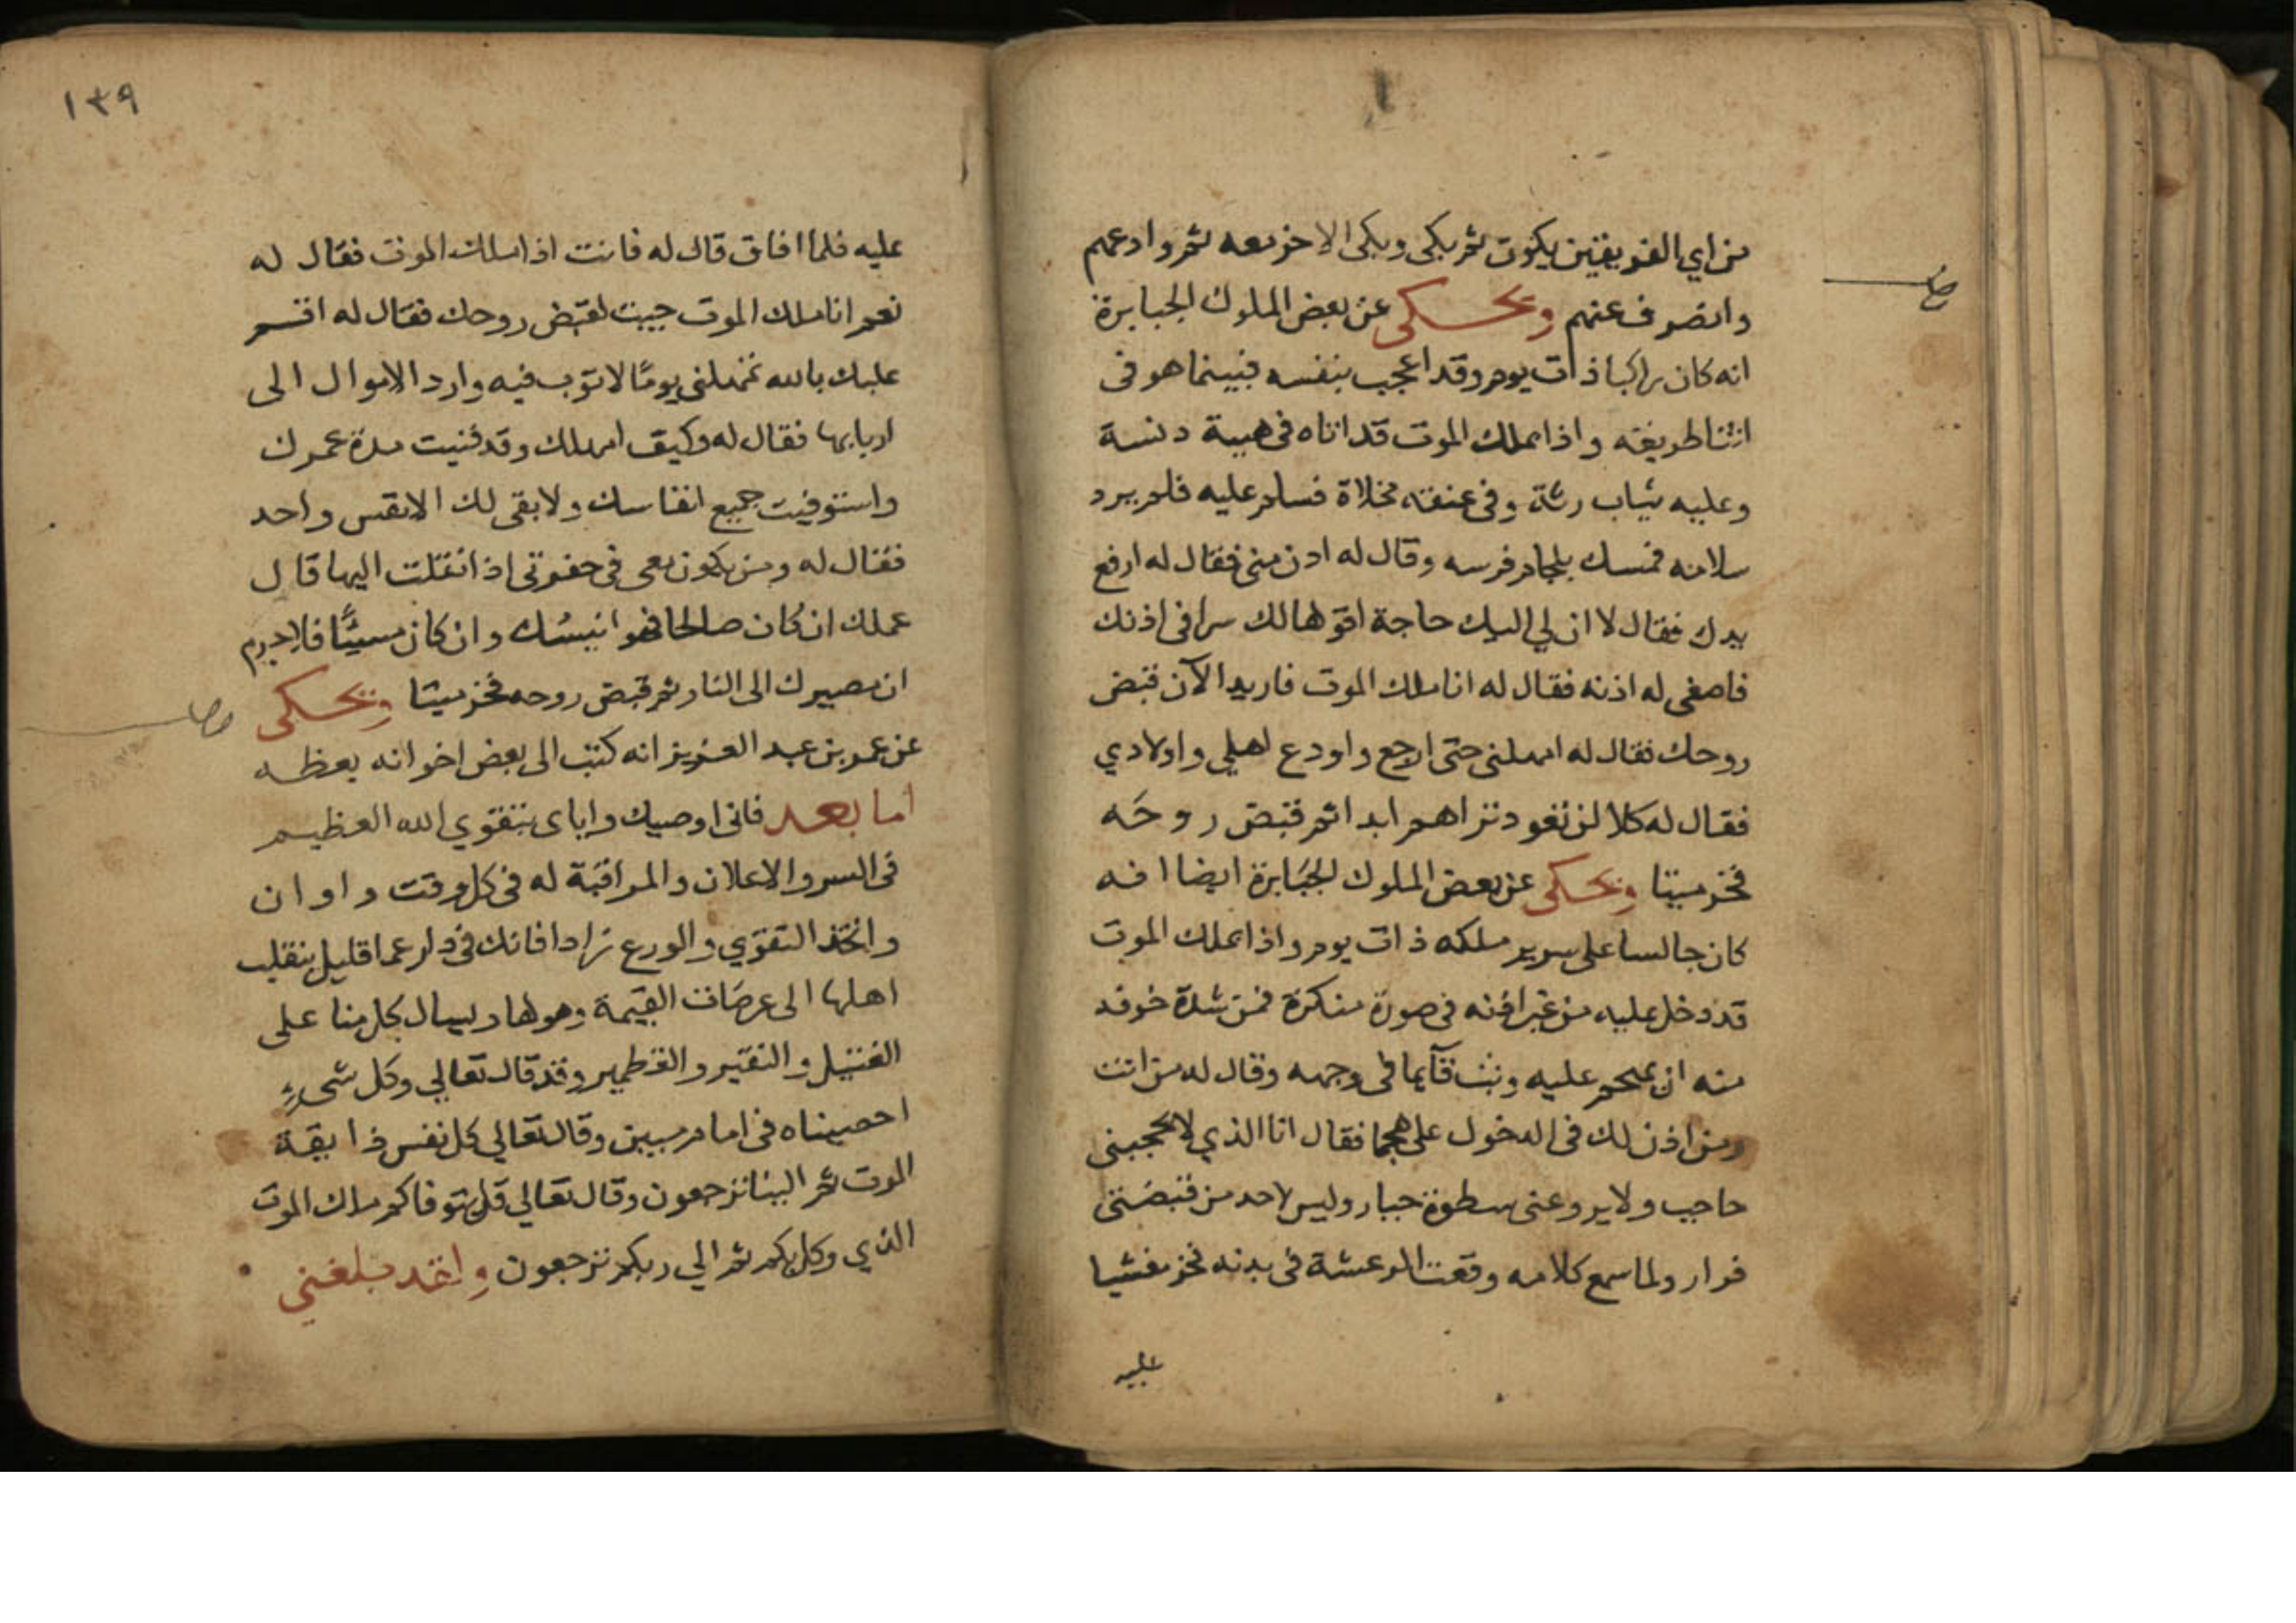 من اي الفريقين يكون ثم بكى وبكى الاخر معه ثم وادعهم
وانصرف عنهم ويحكى عن بعض الملوك الجبابرة
انه كان راكبا ذات يوم وقد اعجب بنفسه فبينما هو فى
اثنا طريقه واذا بملك الموت قد اتاه فى هيبة دنسة
وعليه ثياب رثة وفى عنقه مخلاة فسلم عليه فلم يرد
سلامه فمسك بلجام فرسه وقال له ادن منى فقال له ارفع
يدك فقال لا ان لي اليك حاجة اقولها لك سرا فى اذنك
فاصغى له اذنه فقال له انا ملك الموت فاريد الآن قبض
روحك فقال له امهلنى حتى ارجع واودع اهلي واولادي
فقال له كلا لن تعود تراهم ابدا ثم قبض روحَه
فخر ميتا ويحكى عن بعض الملوك الجبَابرة ايضا انه
كان جالسا على سرير ملكه ذات يوم واذا بملك الموت
قد دخل عليه من غير اذنه فى صورة منكرة فمن شدة خوفه
منه ان يهجم عليه وثب قآيما فى وجهه وقال له من انت
ومن اذن لك فى الدخول على هجما فقال انا الذي لا يحجبنى
حاجب ولا يروعنى سطوة جبار وليس لاحد من قبضتى
فرار ولما سمع كلامه وقعت الرعشة فى بدنه فخر مغشيا
عليه
١٣٩
عليه فلما افاق قال له فانت اذا ملك الموت فقال له
نعم انا ملك الموت جيت لقبض روحك فقال له اقسم
عليك بالله تمهلنى يومًا لاتوب فيه وارد الاموال الى
اربابها فقال له وكيف امهلك وقد فنيت مدة عمرك
واستوفيت جميع انفاسك ولا بقى لك الا نفس واحد
فقال له ومن يكون معى فى حفرتى اذا نقلت اليها قال
عملك ان كان صالحا فهو انيسُك وان كان مسيئًا فلا جرم
ان مصيرك الى النار ثم قبض روحه فخر ميتا ويحكى
عن عمر بن عبد العزيز انه كتب الى بعض اخوانه يعظه
اما بعد فانى اوصيك واياى بتقوي الله العظيم
فى السر والاعلان والمراقبَة له فى كل وقت واوان
واتخذ التقوي والورع زادا فانك فى دار عما قليل ينقلب
اهلها الى عرصَات القيمة وهولها ويسال كل منا على
الفتيل والنقير والقطمير وقد قال تعالي وكل شىءٍ
احصيناه فى امام مبين وقال تعالي كل نفس ذايقة
الموت ثم الينا ترجعون وقال تعالي قل يتوفاكم ملك الموت
الذي وكل بكم ثم الي ربكم ترجعون ولقد بلغني